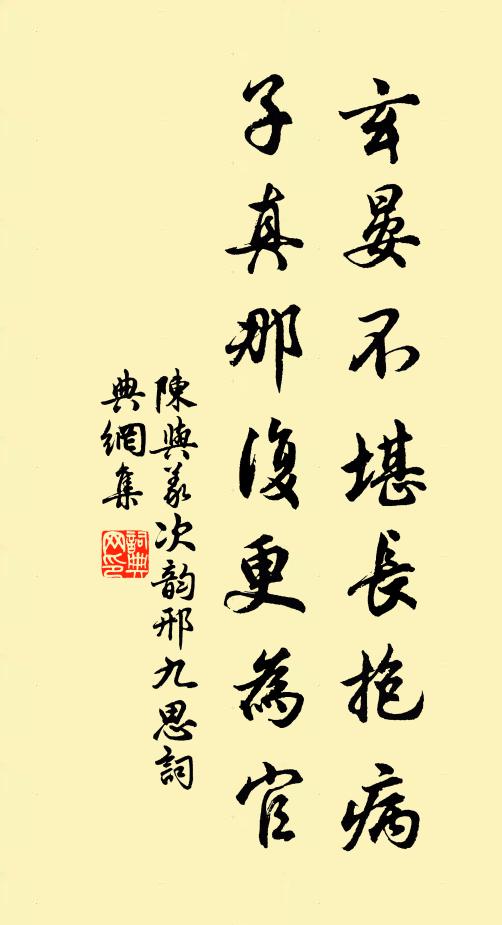 玄晏不堪長抱病
子真那復更為官
陳與義次韵邢九思詞
典網集
詞典网印